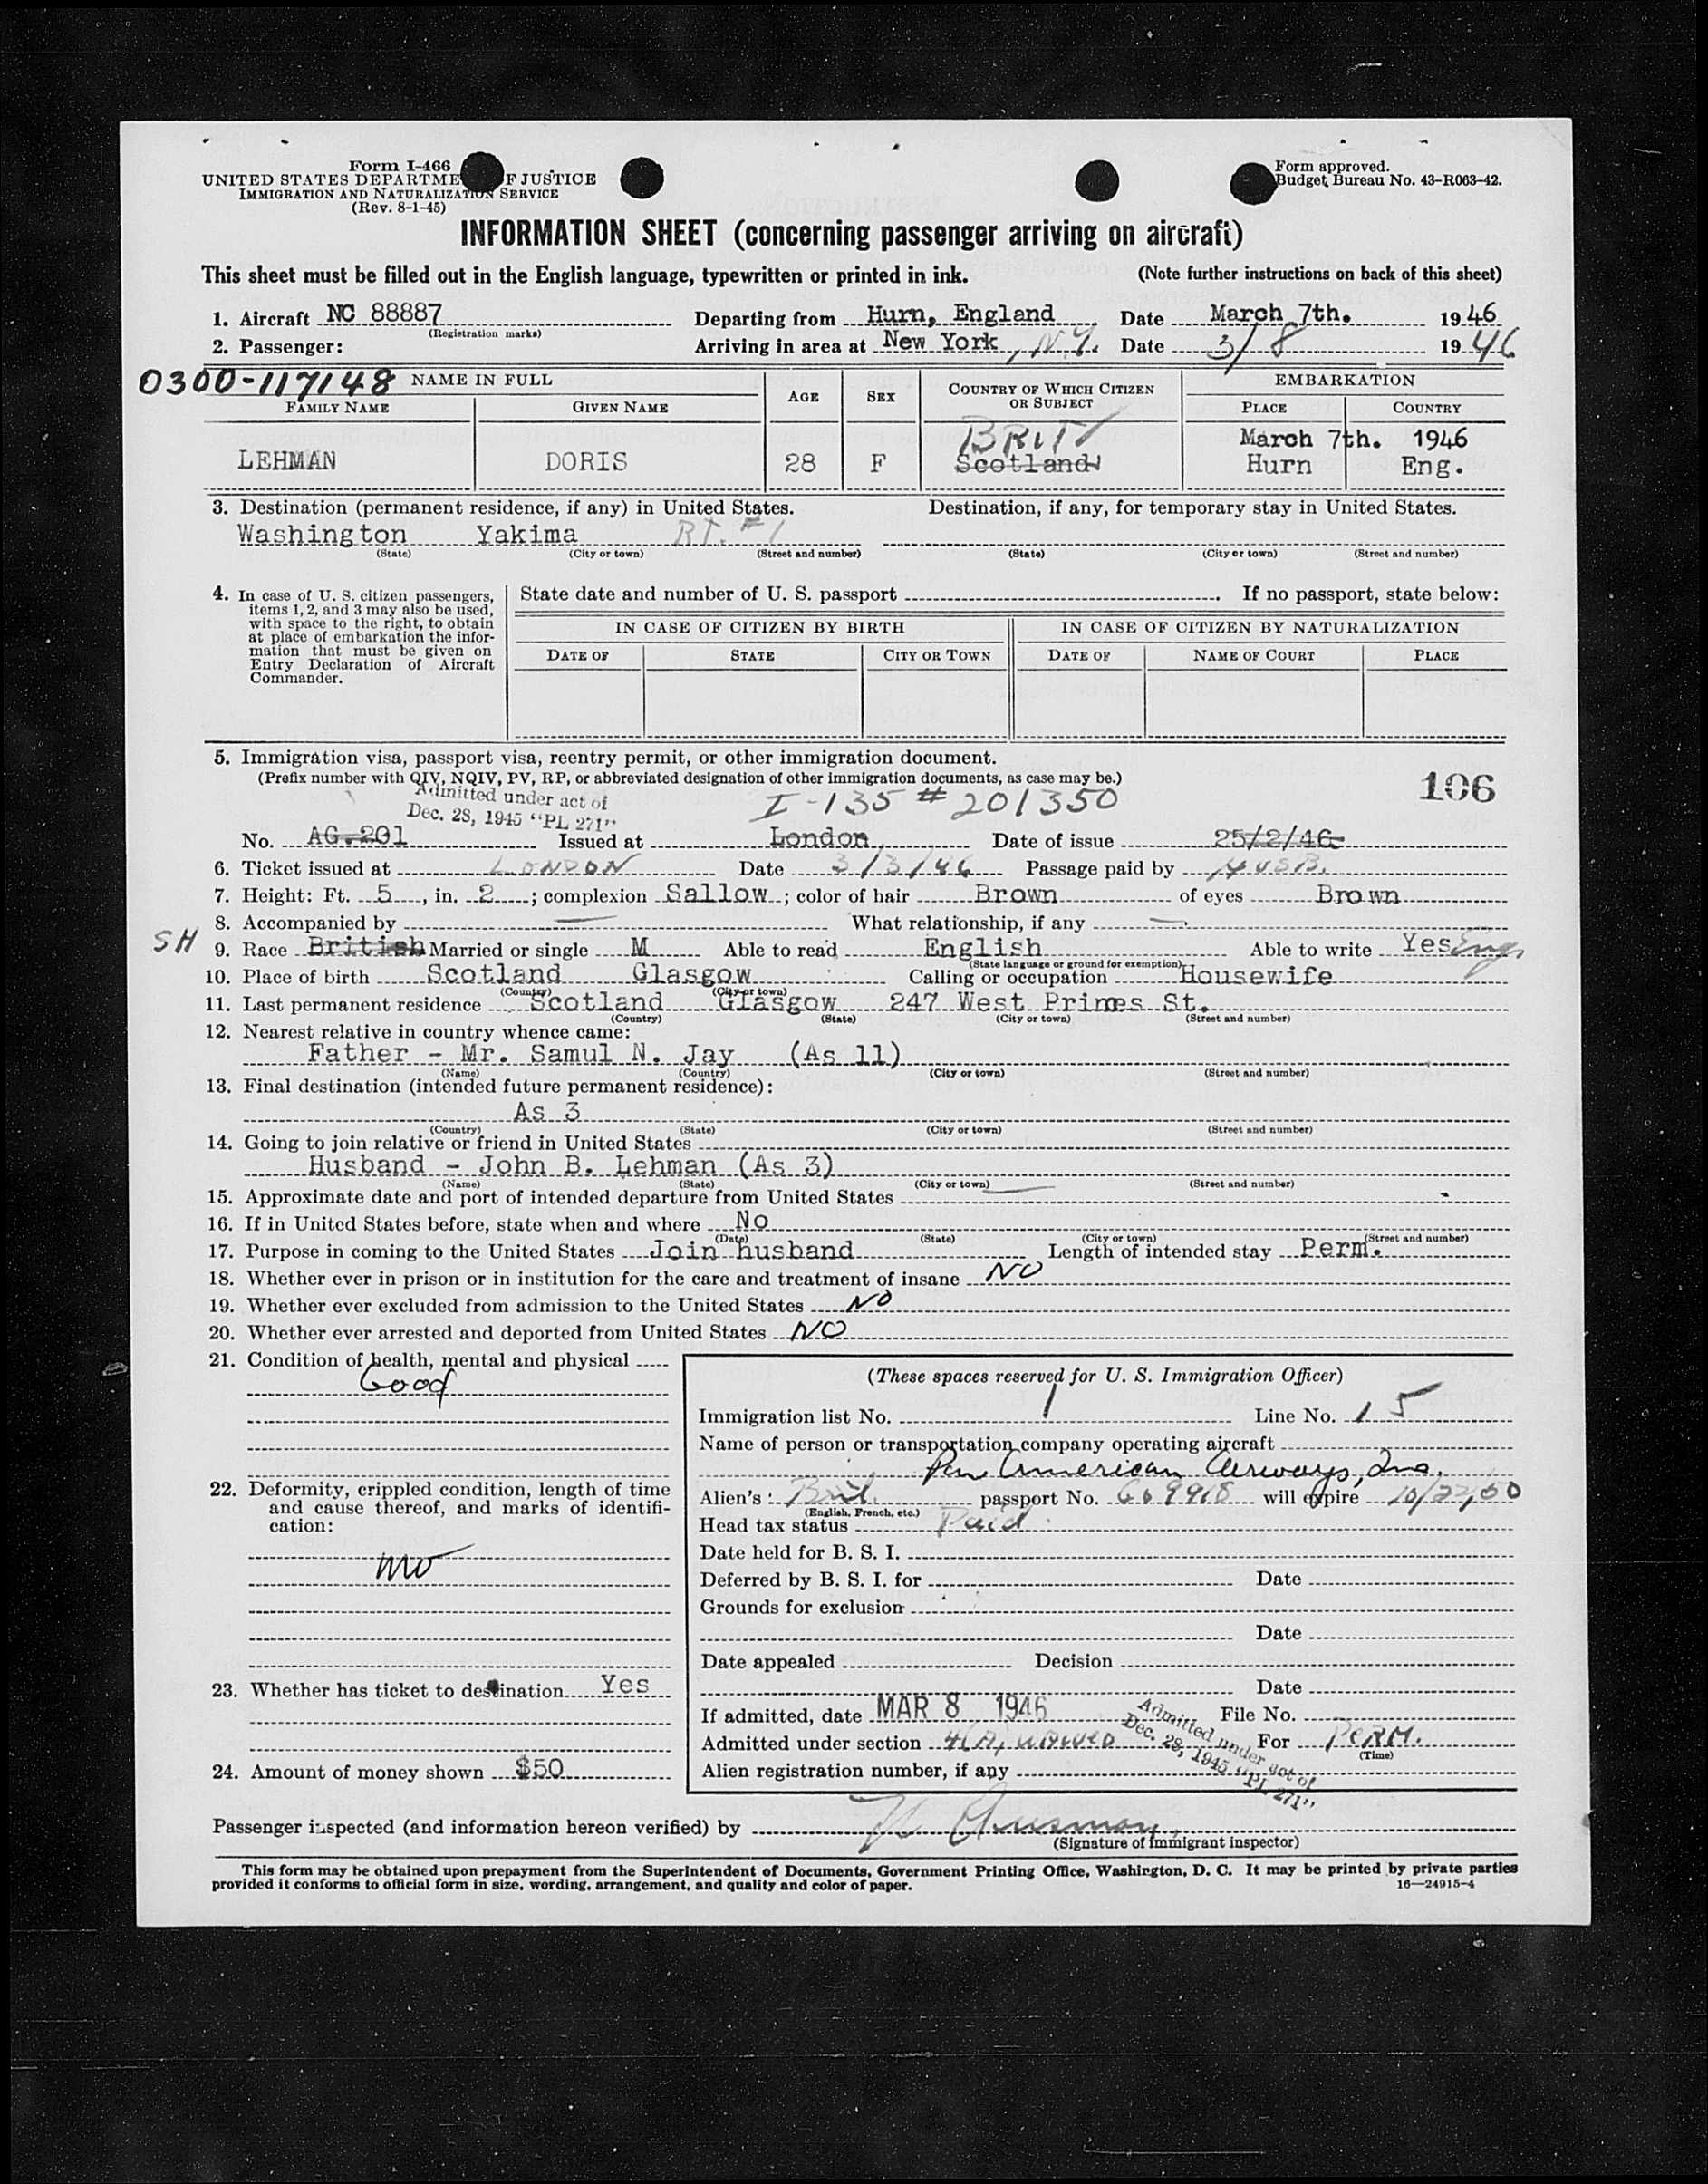 Form I-466
UNITED STATES DEPARTME F JUSTICE
IMMIGRATION AND NATURALIZATION SERVICE
(Rev. 8-1-45)
Form approved.
Budget Bureau No. 43-R063-42.
INFORMATION SHEET (concerning passenger arriving on aircraft)
This sheet must be filled out in the English language, typewritten or printed in ink. (Note further instructions on back of this sheet)
1. Aircraft NC 88887 Departing from Hurn, England Date March 7th. 1946
(Registration marks)
2. Passenger: Arriving in area at New York, N.Y. Date 3/8 1946
0300-117148 NAME IN FULL AGE SEX COUNTRY OF WHICH CITIZEN OR SUBJECT EMBARKATION
FAMILY NAME GIVEN NAME PLACE COUNTRY
BRIT March 7th. 1946
LEHMAN DORIS 28 F Scotland Hurn Eng.
3. Destination (permanent residence, if any) in United States. Destination, if any, for temporary stay in United States.
Washington Yakima RT. #1
(State) (City or town) (Street and number) (State) (City or town) (Street and number)
4. In case of U. S. citizen passengers, items 1, 2, and 3 may also be used, with space to the right, to obtain at place of embarkation the information that must be given on Entry Declaration of Aircraft Commander.
State date and number of U. S. passport . If no passport, state below:
IN CASE OF CITIZEN BY BIRTH IN CASE OF CITIZEN BY NATURALIZATION
DATE OF STATE CITY OR TOWN DATE OF NAME OF COURT PLACE
5. Immigration visa, passport visa, reentry permit, or other immigration document.
(Prefix number with QIV, NQIV, PV, RP, or abbreviated designation of other immigration documents, as case may be.) 106
Admitted under act of
Dec. 28, 1945 "PL 271"
I-135 # 201350
No. AG.201 Issued at London Date of issue 25/2/46
6. Ticket issued at LONDON Date 3/3/46 Passage paid by HUSB.
7. Height: Ft. 5, in. 2; complexion Sallow; color of hair Brown of eyes Brown
8. Accompanied by — What relationship, if any —
SH 9. Race British Married or single M Able to read English Able to write Yes Eng.
(State language or ground for exemption)
10. Place of birth Scotland Glasgow Calling or occupation Housewife
(Country) (City or town)
11. Last permanent residence Scotland Glasgow 247 West Primes St.
(Country) (State) (City or town) (Street and number)
12. Nearest relative in country whence came:
Father - Mr. Samul N. Jay (As 11)
(Name) (Country) (City or town) (Street and number)
13. Final destination (intended future permanent residence):
As 3
(Country) (State) (City or town) (Street and number)
14. Going to join relative or friend in United States
Husband - John B. Lehman (As 3)
(Name) (State) (City or town) (Street and number)
15. Approximate date and port of intended departure from United States —
16. If in United States before, state when and where No
(Date) (State) (City or town) (Street and number)
17. Purpose in coming to the United States Join husband Length of intended stay Perm.
18. Whether ever in prison or in institution for the care and treatment of insane NO
19. Whether ever excluded from admission to the United States NO
20. Whether ever arrested and deported from United States NO
21. Condition of health, mental and physical
Good
22. Deformity, crippled condition, length of time and cause thereof, and marks of identification:
no
23. Whether has ticket to destination Yes
24. Amount of money shown $50
(These spaces reserved for U. S. Immigration Officer)
Immigration list No. 1 Line No. 15
Name of person or transportation company operating aircraft
Pan American Airways, Inc.
Alien's Brit. passport No. will expire 10/22/50
(English, French, etc.)
Head tax status Paid
Date held for B. S. I.
Deferred by B. S. I. for Date
Grounds for exclusion
Date
Date appealed Decision
Date
If admitted, date MAR 8 1946 File No.
Admitted under section 4(A) waived For PERM.
(Time)
Admitted under act of
Dec. 28, 1945 "PL 271"
Alien registration number, if any
Passenger inspected (and information hereon verified) by
(Signature of immigrant inspector)
This form may be obtained upon prepayment from the Superintendent of Documents, Government Printing Office, Washington, D. C. It may be printed by private parties
provided it conforms to official form in size, wording, arrangement, and quality and color of paper. 16—24915-4